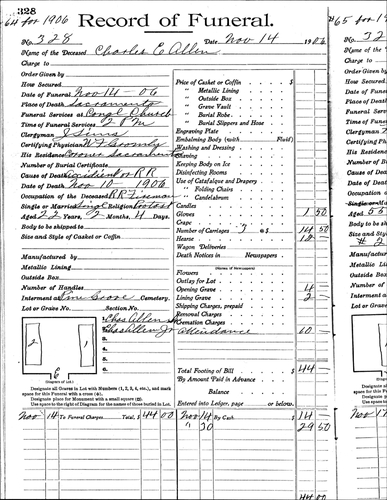 328
64 for 1906
Record of Funeral.
No. 328 Date, Nov 14 1906
Name of the Deceased Charles E Allen
Charge to
Order Given by
How Secured
Date of Funeral Nov 14-06
Place of Death Sacramento
Funeral Services at Congl Church
Time of Funeral Services 2 PM
Clergyman J Sims
Certifying Physician W F
His Residence Coroner Sacramento
Number of Burial Certificate
Cause of Death Accident on RR
Date of Death Nov 10-1906
Occupation of the Deceased RR Fireman
Single or Married Singl Religion Protest
Aged 22 Years, 2 Months, 4 Days.
Body to be shipped to
Size and Style of Casket or Coffin
Manufactured by
Metallic Lining
Outside Box
Number of Handles
Interment Pine Grove Cemetery.
Lot or Grave No. Section No.
Chas Allen Sr
Chas Allen Jr
1 2
(Diagram of Lot.)
Designate all Graves in Lot with Numbers (1, 2, 3, 4, etc.), and mark
space for this Funeral with a cross (x).
Designate place for Monument with a small square (□).
Use space to the right of Diagram for the names of those buried in Lot.
Nov 14 To Funeral Charges Total, $ 44 00
Price of Casket or Coffin $
" Metallic Lining
" Outside Box
" Grave Vault
" Burial Robe
" Burial Slippers and Hose
Engraving Plate
Embalming Body (with Fluid)
Washing and Dressing
Shaving
Keeping Body on Ice
Disinfecting Rooms
Use of Catafalque and Drapery
" Folding Chairs
" Candelabrum
Candles
Gloves 1 50
Crape
Number of Carriages @ $ 14 50
Hearse
Wagon Deliveries
Death Notices in Newspapers
(Names of Newspapers)
Flowers
Outlay for Lot
Opening Grave 4
Lining Grave 2
Shipping Charges, prepaid
Removal Charges
Cremation Charges
Attendance 10
Total Footing of Bill $ 44
By Amount Paid in Advance
Balance
Entered into Ledger, page or below.
Nov 14 By Cash $ 14
" 20 29 50
44 00